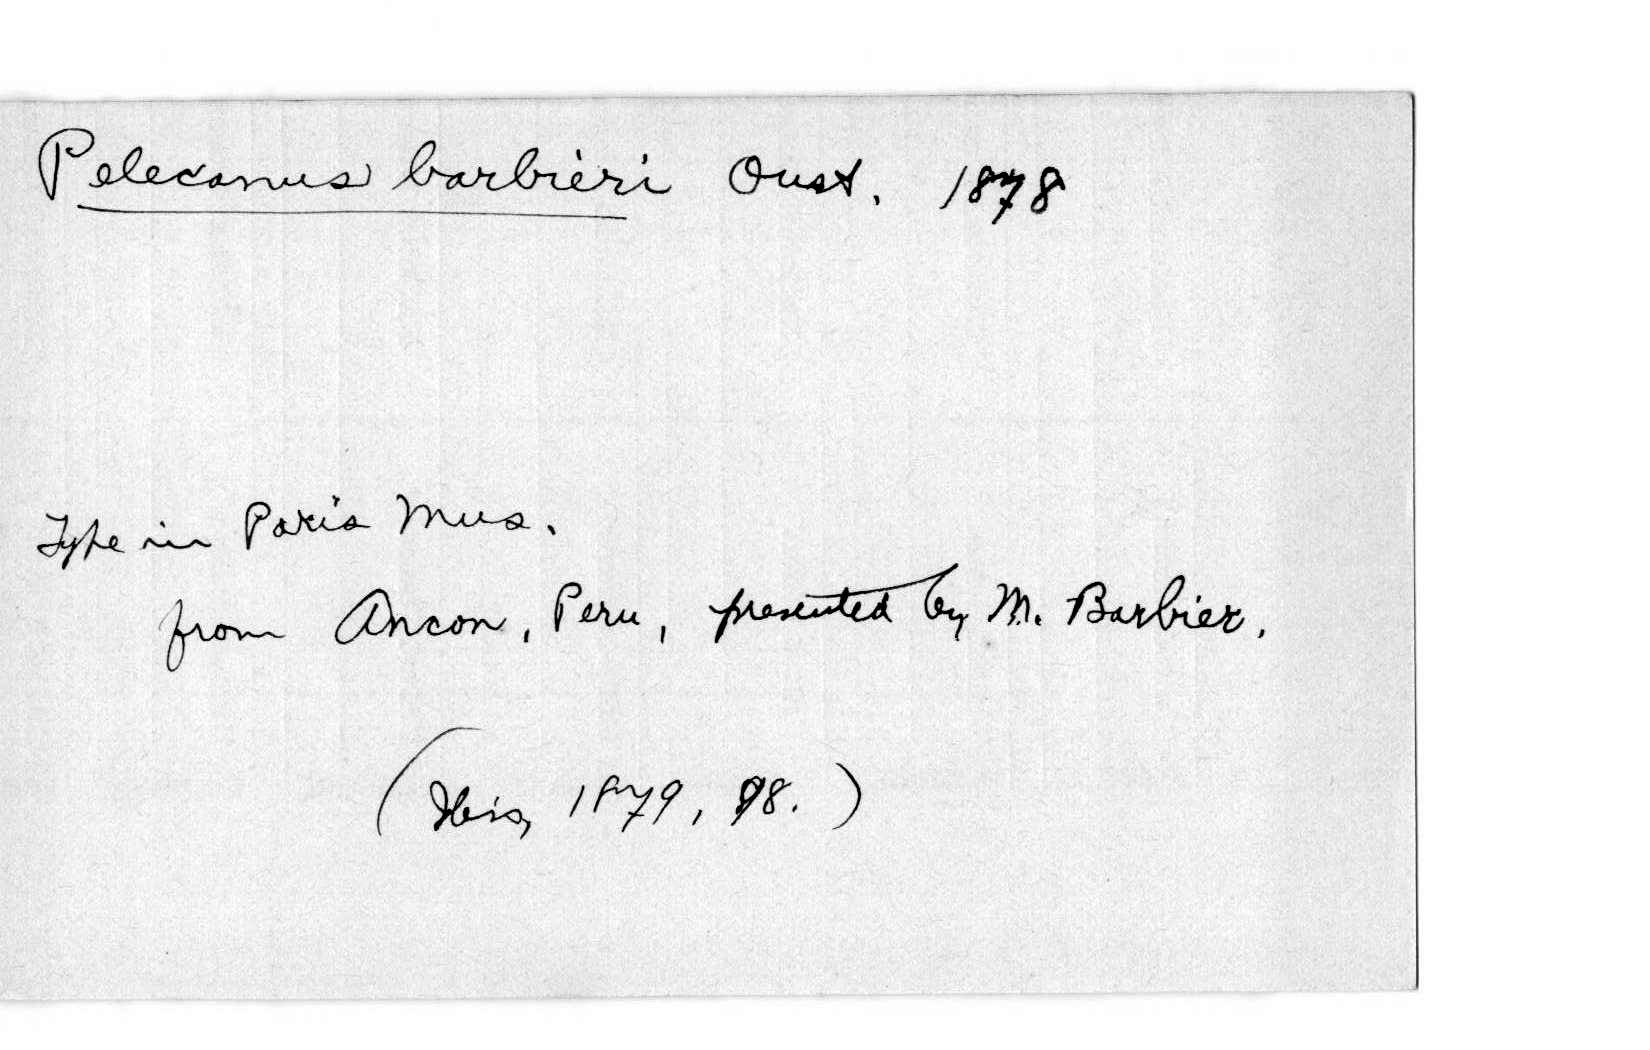 Pelecanus barbieri Oust. 1878
Type in Paris Mus.
from Ancon, Peru, presented by M. Barbier.
(Ibis, 1879, 98.)